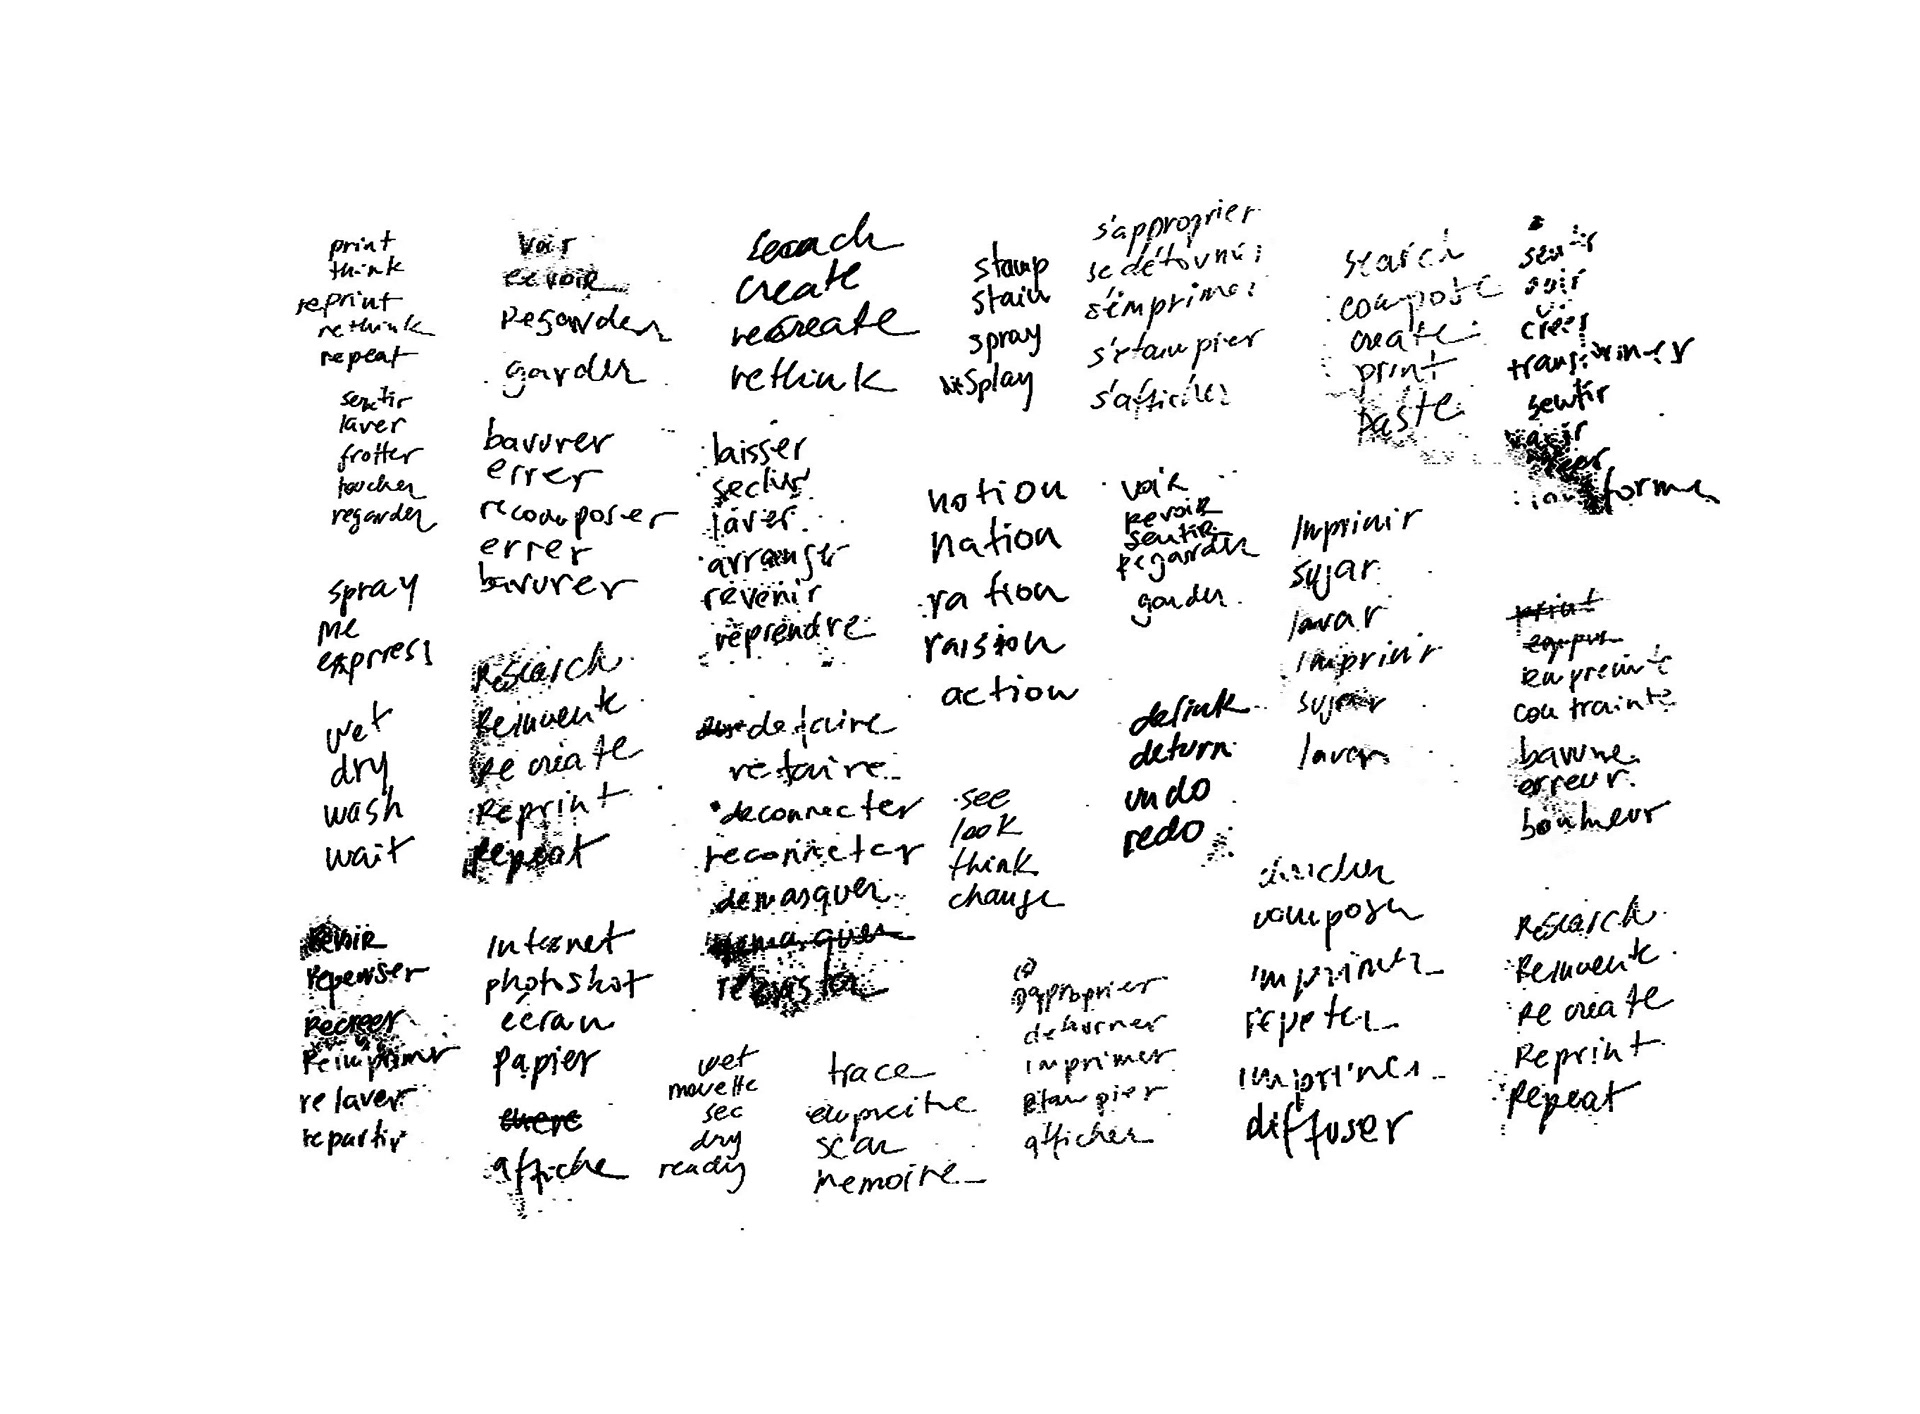 print
think
reprint
rethink
repeat
sentir
laver
frotter
toucher
regarder
spray
me
express
wet
dry
wash
wait
Revoir
Repenser
Recreer
Reimprimer
relaver
repartir
voir
revoir
Regarder
garder
bavurer
errer
recomposer
errer
bavurer
Research
Reinvente
Recreate
Reprint
Repeat
Internet
photoshot
écran
papier
affiche
search
create
recreate
rethink
laisser
secher
laver
arranger
revenir
reprendre
defaire
refaire
deconnecter
reconnecter
demasquer
wet
mouette
sec
dry
ready
trace
empreinte
scan
memoire
stamp
stain
spray
display
notion
nation
ration
raision
action
see
look
think
change
s'approprier
se détourner
s'imprimer
s'etampier
s'afficher
voir
revoir
sentir
regarder
garder
detink
deturn
undo
redo
s'approprier
detourner
imprimer
etampier
afficher
search
compose
create
print
paste
Imprimir
sujar
lavar
Imprimir
sujar
lavar
composer
imprimer
repeter
imprimer
diffuser
sentir
voir
creer
transformer
sentir
print
empreinte
contrainte
bavure
erreur
bonheur
Research
Reinvente
Recreate
Reprint
Repeat